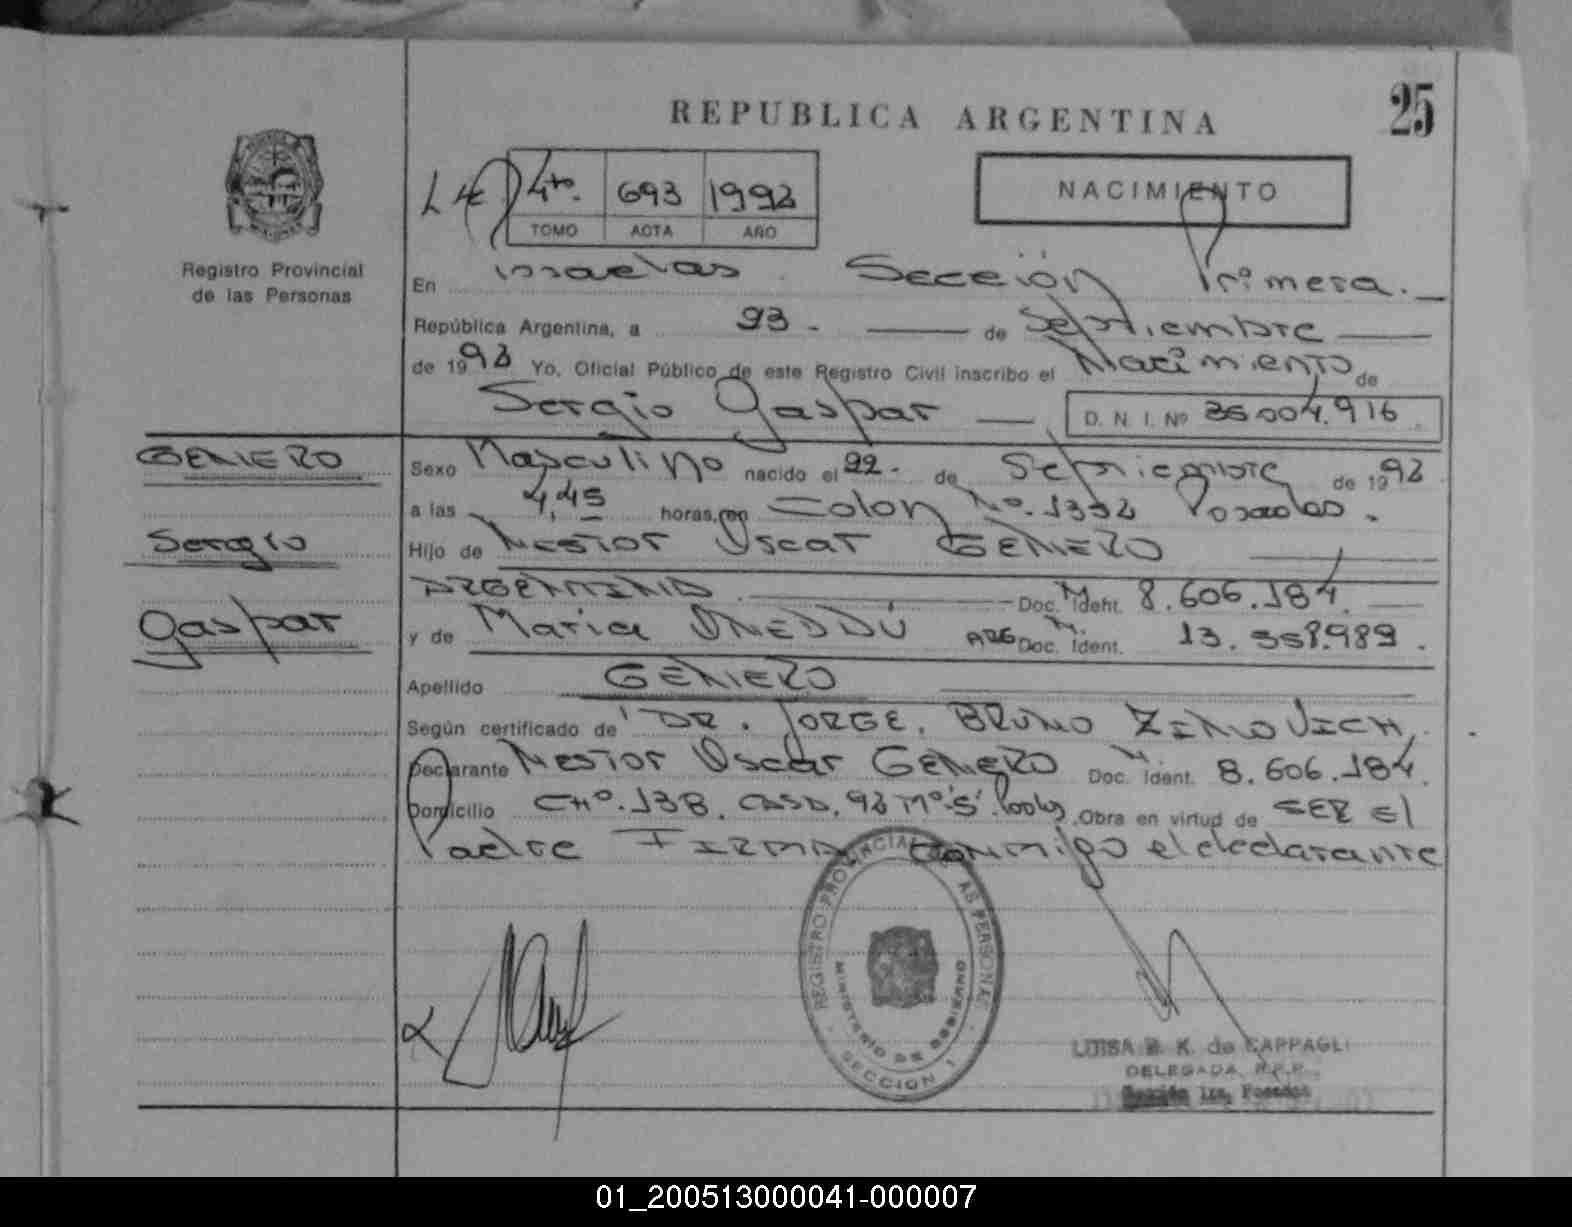 25
REPUBLICA ARGENTINA
4to. 693 1992
TOMO ACTA AÑO
NACIMIENTO
Registro Provincial
de las Personas
En Posadas Sección Primera.
República Argentina, a 23. de Septiembre
de 1992 Yo, Oficial Público de este Registro Civil inscribo el Nacimiento de
Sergio Gaspar D. N. I. Nº 36.004.916
GENERO
Sergio
Gaspar
Sexo Masculino nacido el 22. de Septiembre de 1992
a las 4,45 horas, en Colon No. 1392 Posadas.
Hijo de NESTOR Oscar GENERO
ARGENTINA. Doc. M. Ident. 8.606.184.
y de Maria ONEDDU ARG Doc. M. Ident. 13.558.989.
Apellido GENERO
Según certificado de DR. JORGE. BRUNO ZINOVICH.
Declarante NESTOR Oscar GENERO Doc. M. Ident. 8.606.184.
Domicilio CHº. 138. CASA. 92 Obra en virtud de SER El
Padre FIRMA conmigo el declarante
REGISTRO PROVINCIAL DE LAS PERSONAS
MINISTERIO DE GOBIERNO
SECCION 1
LUISA B. K. de CAPPAGLI
DELEGADA R.P.P.
Sección 1ra. Posadas
01_200513000041-000007